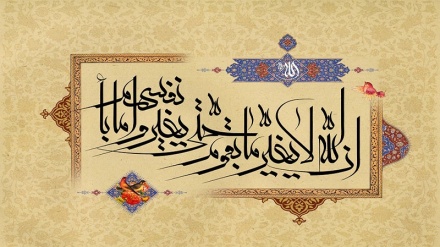 الله
ان الله لا يغيّر ما بقوم حتّى يغيروا ما بأنفسهم